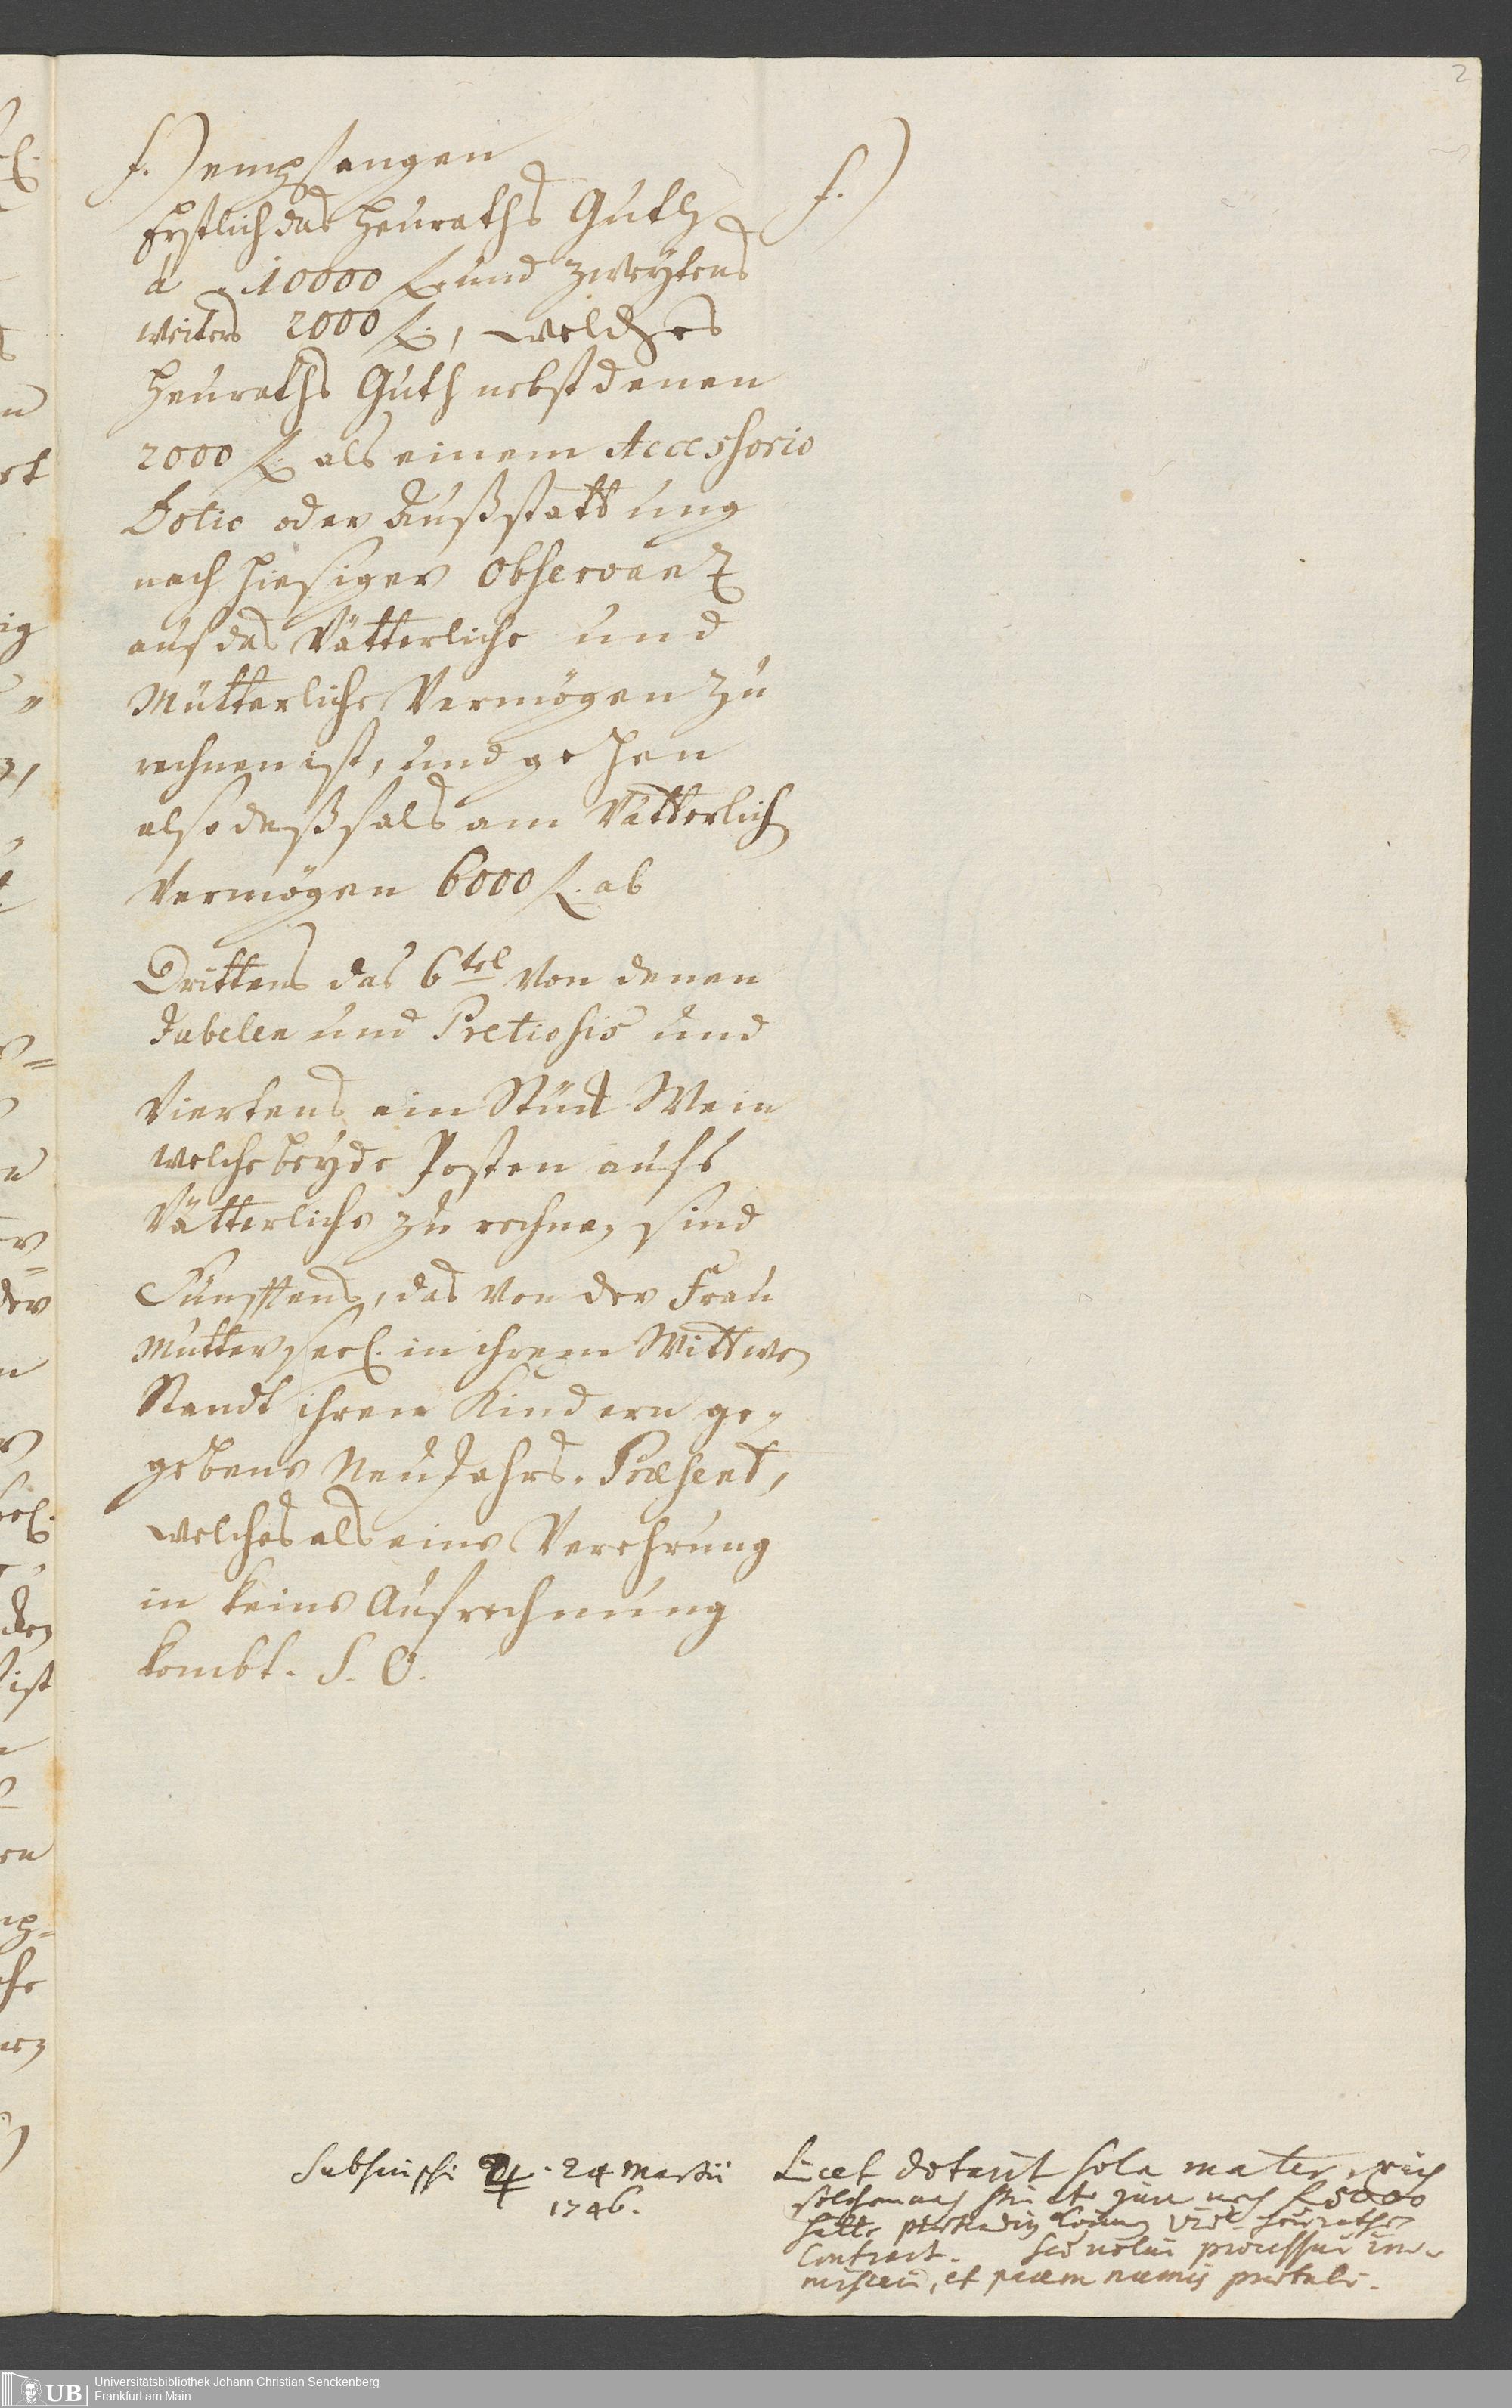 2
f.) empfangen
f.)
Erstlich das Heuraths Guth
à 10000 fl. und zweytens
weiters 2000 fl., welches
Heuraths Guth nebst denen
2000 fl. als einem Accessorio
Dotis oder Außstattung
nach hiesiger Observanz
auf das Vätterliche und
Mütterliche Vermögen zu
rechnen ist, und gehen
also deßfals am Vätterlich
Vermögen 6000 fl. ab
Drittens das 6tel von denen
Jubelen und Pretiosis und
Viertens ein Stück Wein
welche beyde Posten aufs
Vätterliche zu rechnen sind
Fünfftens, das von der Frau
Mutter seel. in ihrem Wittwen
Standt ihren Kindern ge-
gebene NeuJahrs-Præsent,
welches als eine Verehrung
in keine Aufrechnung
kombt. S. O.
Subscripsi ♃. 24 Martii
1746.
Licet dotarit sola mater, mich
solchemnach jure noch fl 5000
hätte Heuraths
Contract. Sed nolui processui im-
misceri, et pacem nummis prætuli.
Universitätsbibliothek Johann Christian Senckenberg
Frankfurt am Main
UB